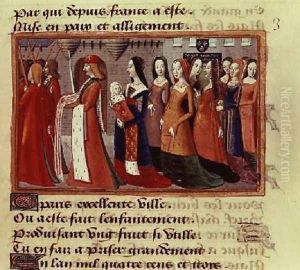 Par qui depuis france a este
Mise en paix et alligement.
3
O paris excellente ville
Ou a este fait lenfantement
Produisant Ung fruit si Utille
Tu en fais a priser grandement
En lan mil quatre cens et trois
NiceArtGallery.com